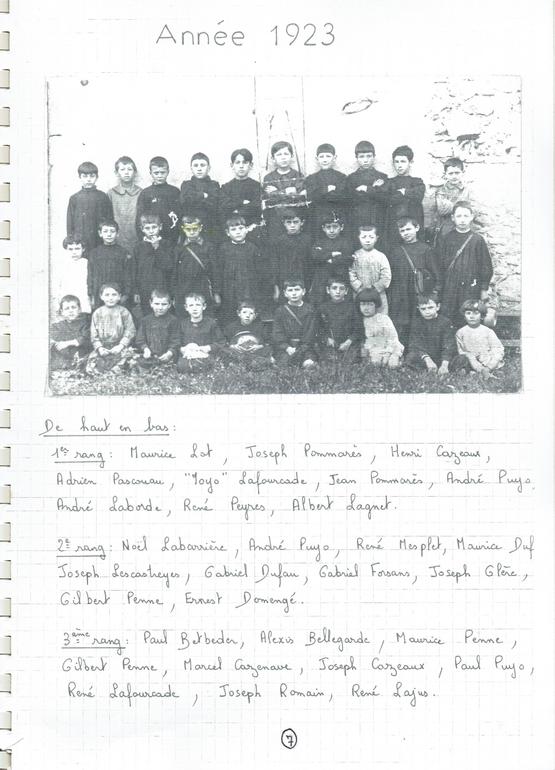 Année 1923
De haut en bas :
1er rang : Maurice Lot, Joseph Pommarès, Henri Cazeaux,
Adrien Pascouau, "Yoyo" Lafourcade, Jean Pommarès, André Puyo,
André Laborde, René Peyres, Albert Lagnet.
2e rang : Noël Labarrière, André Puyo, René Mesplet, Maurice Duf
Joseph Lescastreyes, Gabriel Dufau, Gabriel Forsans, Joseph Glère,
Gilbert Penne, Ernest Domengé.
3ème rang : Paul Betbeder, Alexis Bellegarde, Maurice Penne,
Gilbert Penne, Marcel Cazenave, Joseph Cazeaux, Paul Puyo,
René Lafourcade, Joseph Romain, René Lajus.
7